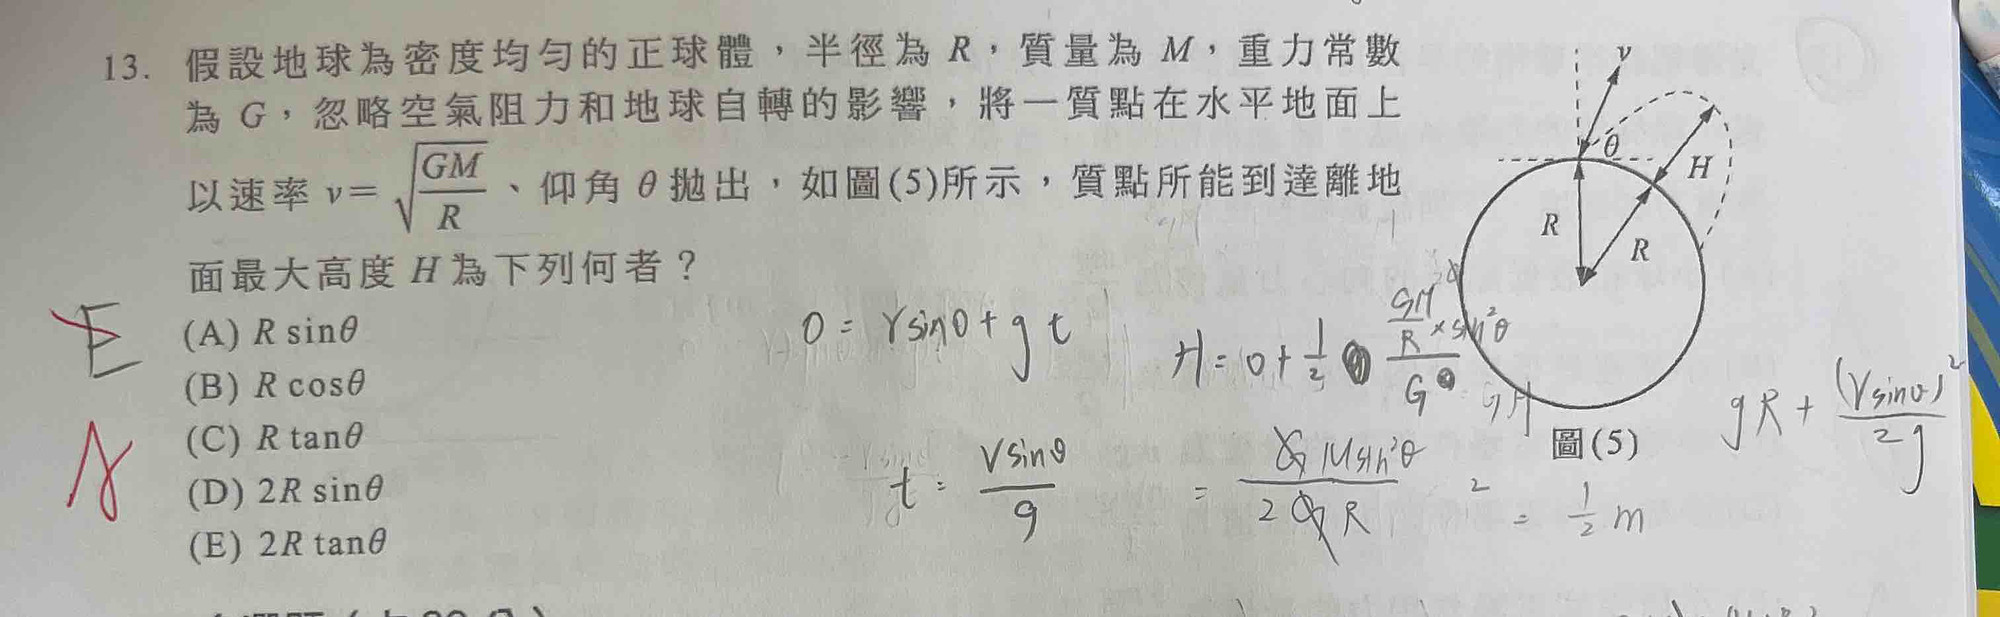 13. 假設地球為密度均勻的正球體，半徑為 R，質量為 M，重力常數
為 G，忽略空氣阻力和地球自轉的影響，將一質點在水平地面上
以速率 v=√(GM/R)、仰角θ拋出，如圖(5)所示，質點所能到達離地
面最大高度 H 為下列何者？
(A) R sinθ
(B) R cosθ
(C) R tanθ
(D) 2R sinθ
(E) 2R tanθ
E
A
v
θ
H
R
R
圖(5)
0 = Vsinθ + g t
t = Vsinθ/g
gR + (Vsinθ)²/2g
= 1/2 m